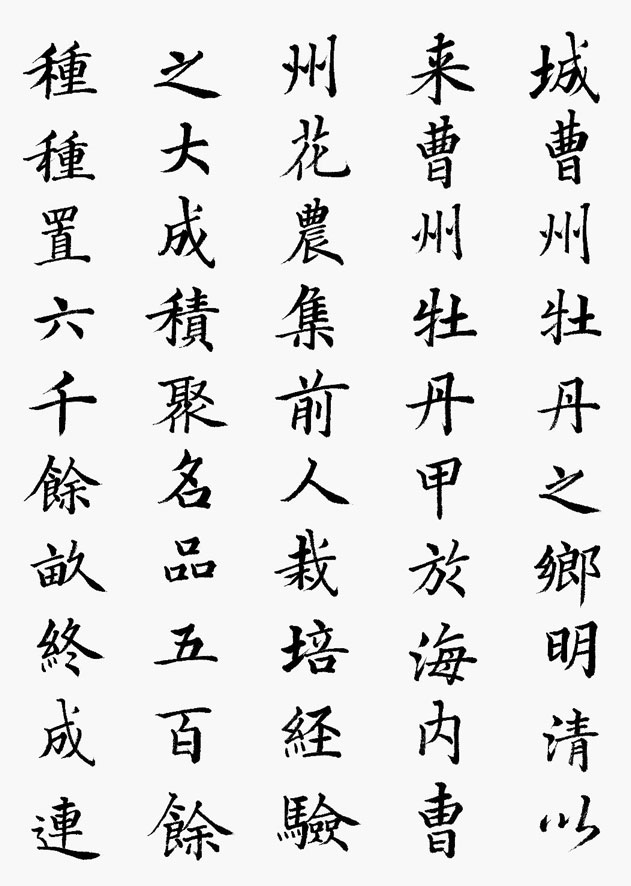 城曹州牡丹之鄉明清以
来曹州牡丹甲於海内曹
州花農集前人栽培経驗
之大成積聚名品五百餘
種種置六千餘畝終成連